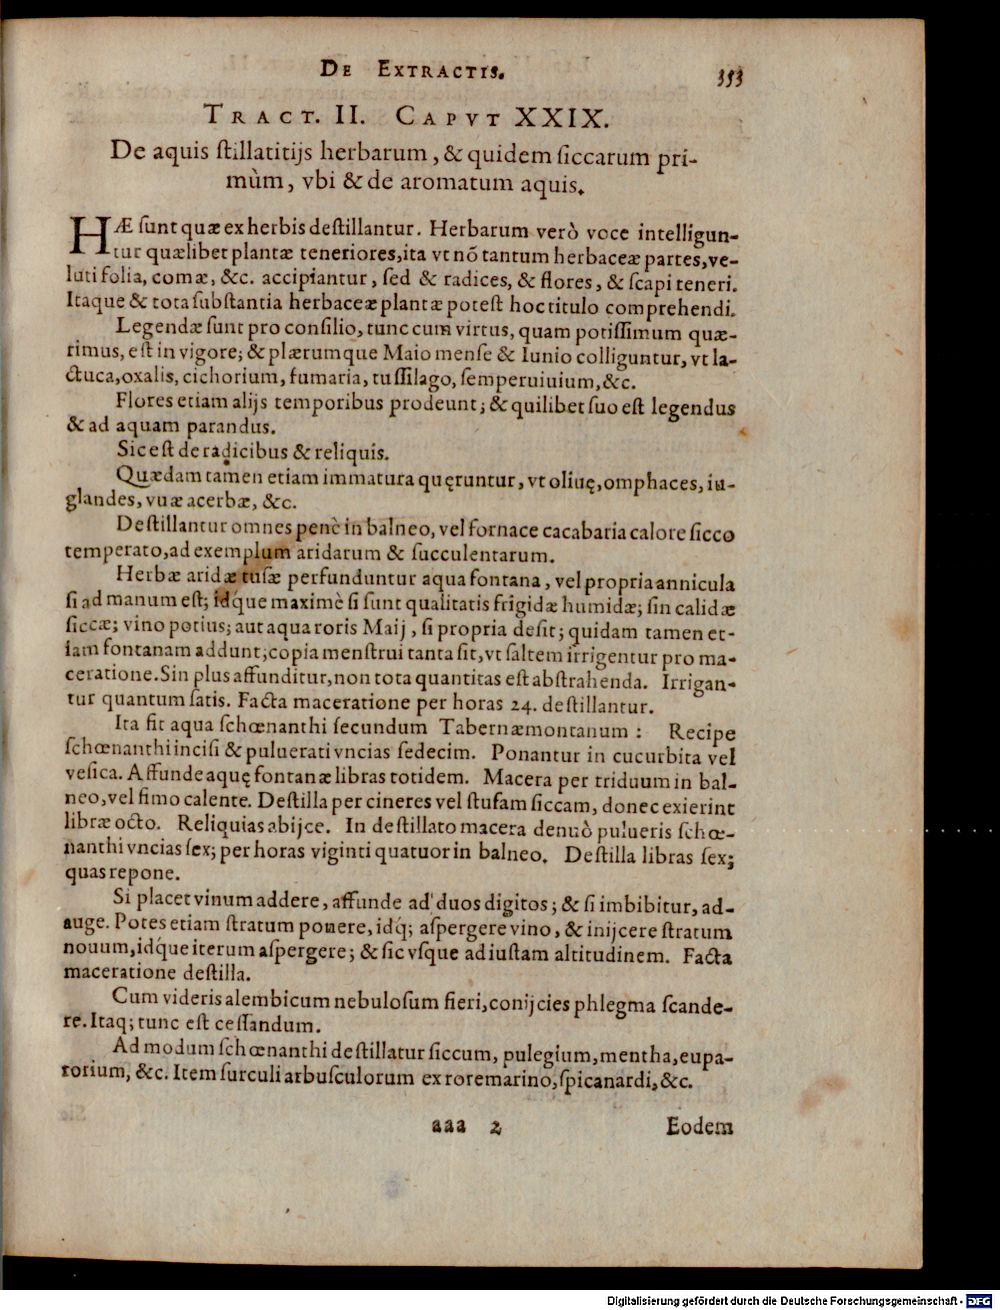 DE EXTRACTIS. 353
TRACT. II. CAPVT XXIX.
De aquis ſtillatitijs herbarum, & quidem ſiccarum pri-
mùm, vbi & de aromatum aquis.
HÆ ſunt quæ ex herbis deſtillantur. Herbarum verò voce intelligun-
tur quælibet plantæ teneriores, ita vt nõ tantum herbaceæ partes, ve-
luti folia, comæ, &c. accipiantur, ſed & radices, & flores, & ſcapi teneri.
Itaque & tota ſubſtantia herbaceæ plantæ poteſt hoc titulo comprehendi.
Legendæ ſunt pro conſilio, tunc cum virtus, quam potiſſimum quæ-
rimus, eſt in vigore; & plærumque Maio menſe & Iunio colliguntur, vt la-
ctuca, oxalis, cichorium, fumaria, tuſſilago, ſemperuiuium, &c.
Flores etiam alijs temporibus prodeunt; & quilibet ſuo eſt legendus
& ad aquam parandus.
Sic eſt de radicibus & reliquis.
Quædam tamen etiam immatura quęruntur, vt oliuę, omphaces, iu-
glandes, vuæ acerbæ, &c.
Deſtillantur omnes penè in balneo, vel fornace cacabaria calore ſicco
temperato, ad exemplum aridarum & ſucculentarum.
Herbæ aridæ tuſæ perfunduntur aqua fontana, vel propria annicula
ſi ad manum eſt; idq́ue maximè ſi ſunt qualitatis frigidæ humidæ; ſin calidæ
ſiccæ; vino potius; aut aqua roris Maij, ſi propria deſit; quidam tamen et-
iam fontanam addunt; copia menſtrui tanta ſit, vt ſaltem irrigentur pro ma-
ceratione. Sin plus affunditur, non tota quantitas eſt abſtrahenda. Irrigan-
tur quantum ſatis. Facta maceratione per horas 24. deſtillantur.
Ita fit aqua ſchœnanthi ſecundum Tabernæmontanum: Recipe
ſchœnanthi inciſi & puluerati vncias ſedecim. Ponantur in cucurbita vel
veſica. Affunde aquę fontanæ libras totidem. Macera per triduum in bal-
neo, vel fimo calente. Deſtilla per cineres vel ſtufam ſiccam, donec exierint
libræ octo. Reliquias abijce. In deſtillato macera denuò pulueris ſchœ-
nanthi vncias ſex; per horas viginti quatuor in balneo. Deſtilla libras ſex;
quas repone.
Si placet vinum addere, affunde ad duos digitos; & ſi imbibitur, ad-
auge. Potes etiam ſtratum ponere, idq́; aſpergere vino, & inijcere ſtratum
nouum, idq́ue iterum aſpergere; & ſic vſque ad iuſtam altitudinem. Facta
maceratione deſtilla.
Cum videris alembicum nebuloſum fieri, conijcies phlegma ſcande-
re. Itaq; tunc eſt ceſſandum.
Ad modum ſchœnanthi deſtillatur ſiccum, pulegium, mentha, eupa-
torium, &c. Item ſurculi arbuſculorum ex roremarino, ſpica nardi, &c.
aaa 2 Eodem
Digitalisierung gefördert durch die Deutsche Forschungsgemeinschaft - DFG